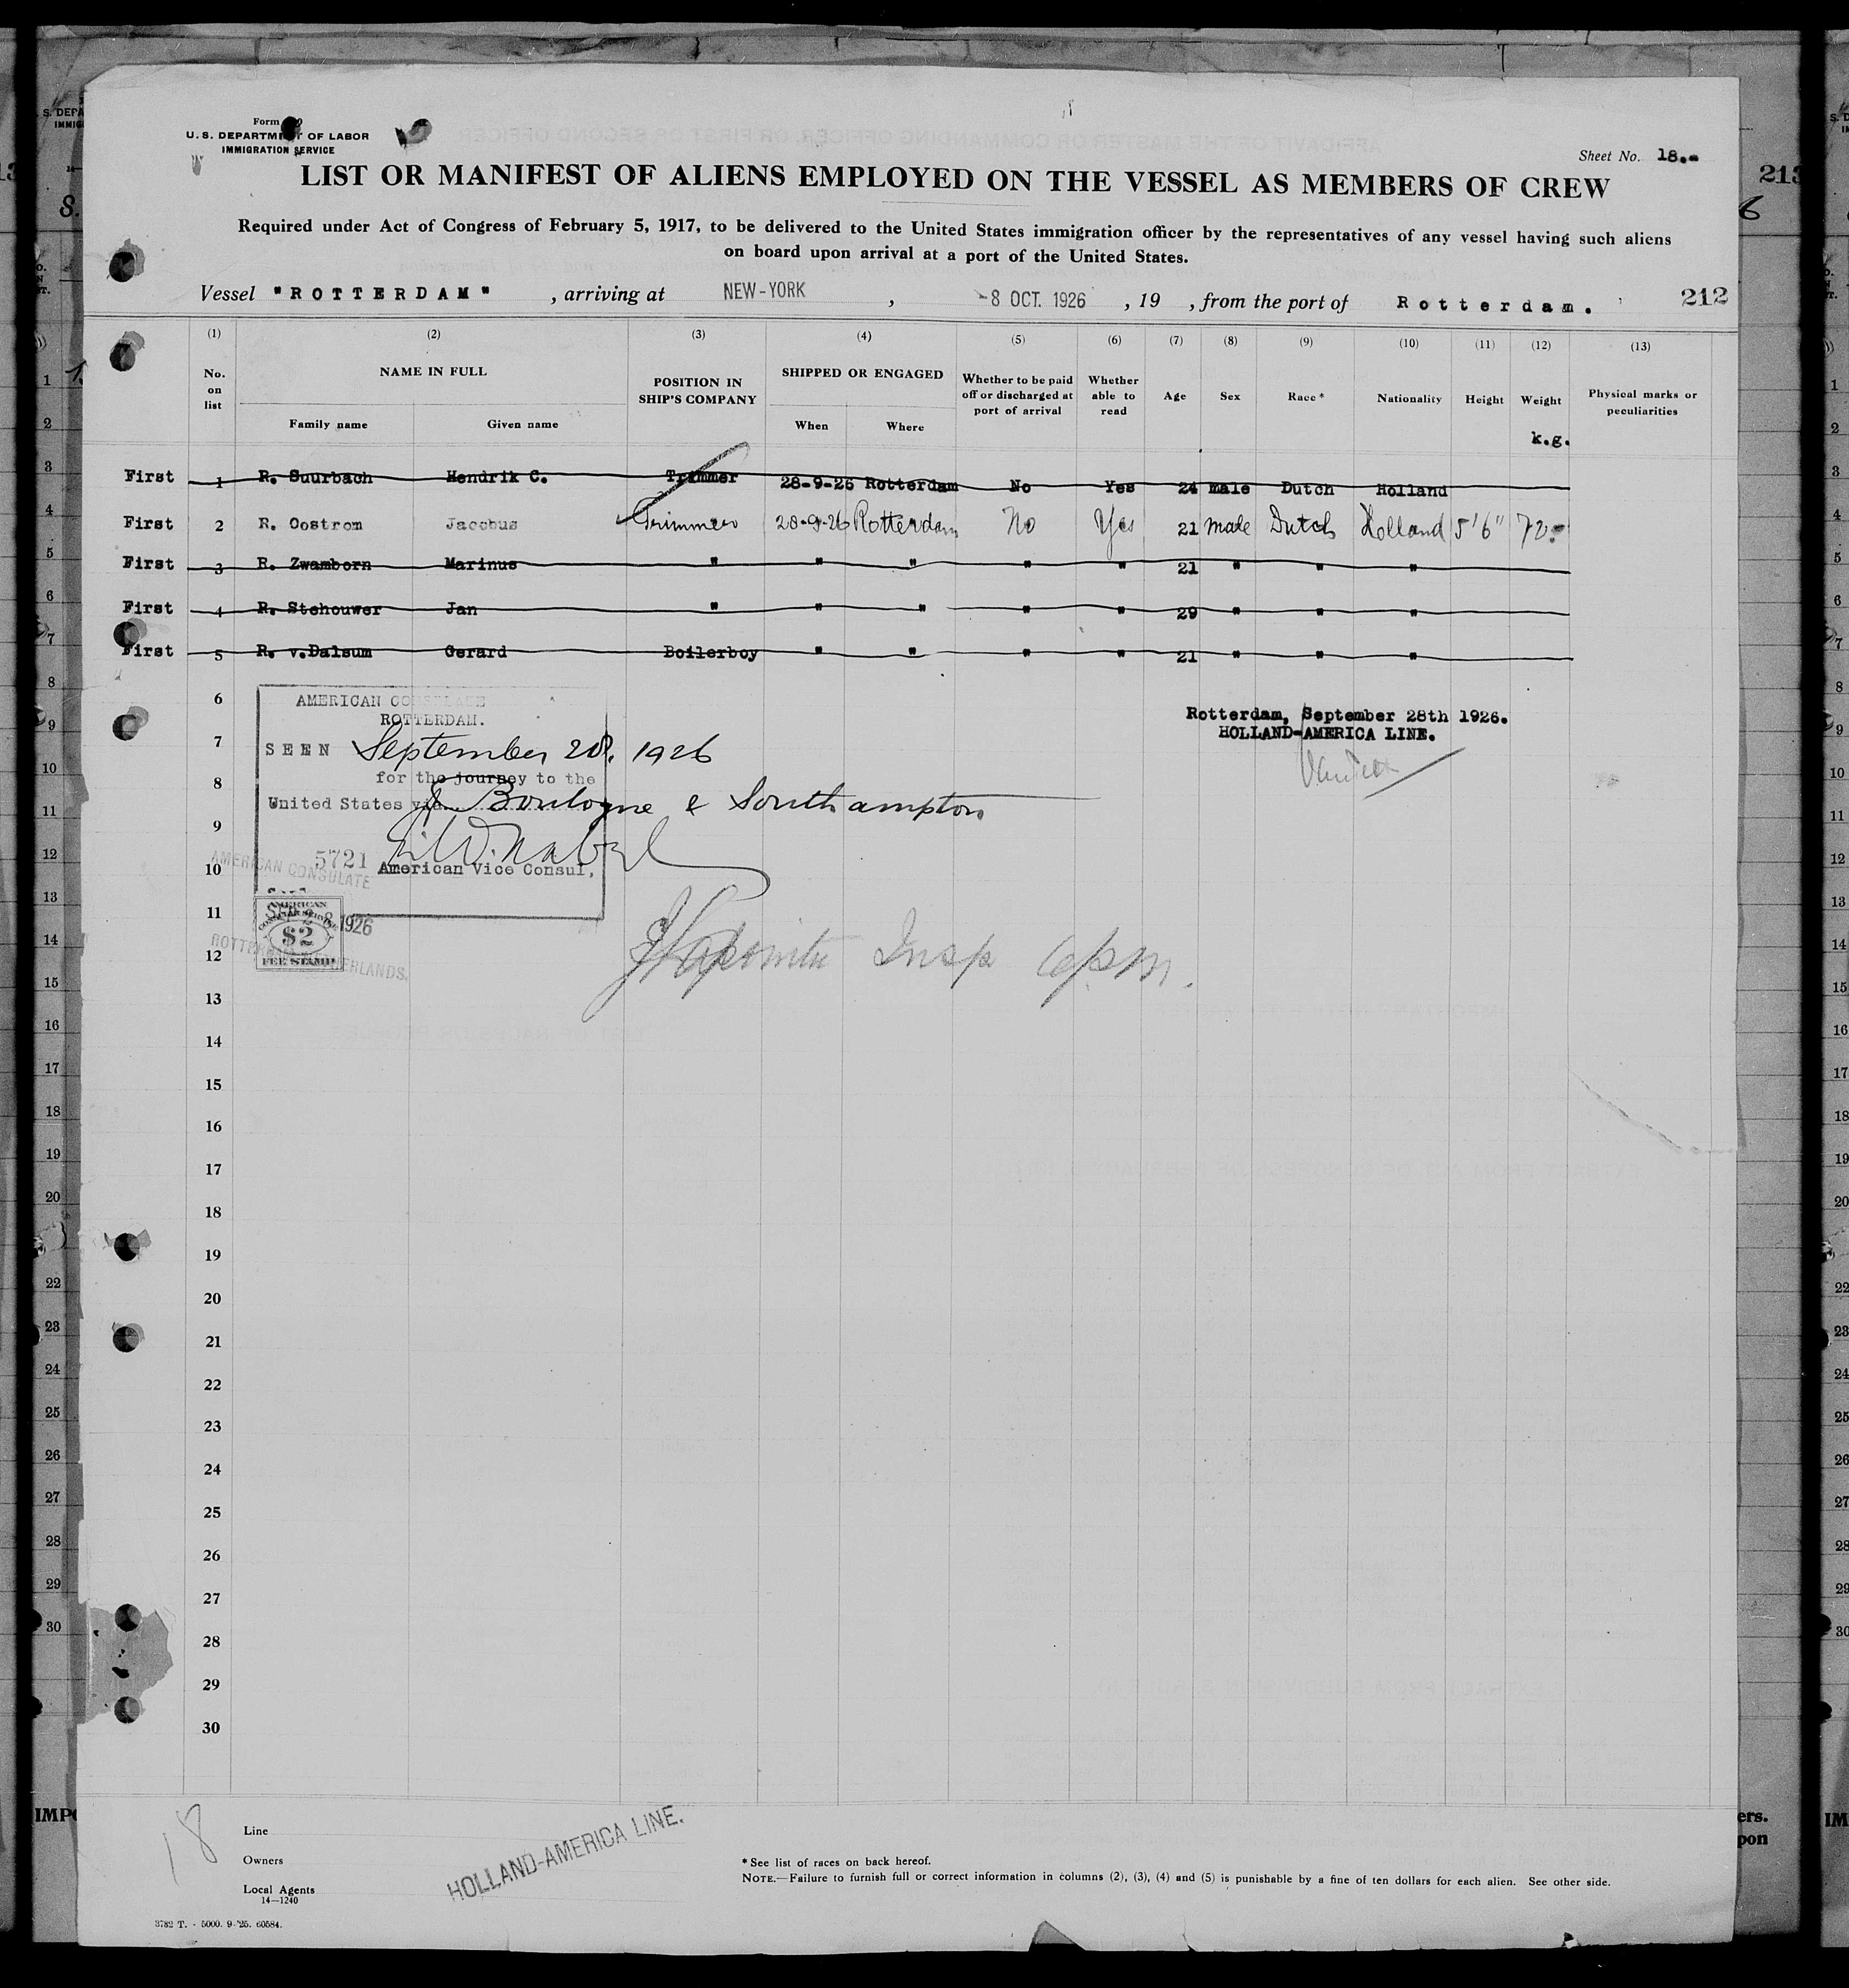 Form
U. S. DEPARTMENT OF LABOR
IMMIGRATION SERVICE
Sheet No. 18.-
LIST OR MANIFEST OF ALIENS EMPLOYED ON THE VESSEL AS MEMBERS OF CREW
Required under Act of Congress of February 5, 1917, to be delivered to the United States immigration officer by the representatives of any vessel having such aliens
on board upon arrival at a port of the United States.
Vessel "ROTTERDAM" , arriving at NEW-YORK , -8 OCT. 1926 , 19 , from the port of Rotterdam. 212
(1) (2) (3) (4) (5) (6) (7) (8) (9) (10) (11) (12) (13)
No. on list NAME IN FULL POSITION IN SHIP'S COMPANY SHIPPED OR ENGAGED Whether to be paid off or discharged at port of arrival Whether able to read Age Sex Race* Nationality Height Weight Physical marks or peculiarities
Family name Given name When Where k.g.
First 1 R. Suurbach Hendrik C. Trimmer 28-9-26 Rotterdam No Yes 24 male Dutch Holland
First 2 R. Oostrom Jacobus Trimmer 28-9-26 Rotterdam No Yes 21 male Dutch Holland 5'6" 72.-
First 3 R. Zwamborn Marinus " " " " " 21 " " "
First 4 R. Stehouwer Jan " " " " " 29 " " "
First 5 R. v.Dalsum Gerard Boilerboy " " " " 21 " " "
6
AMERICAN CONSULATE
ROTTERDAM.
Rotterdam, September 28th 1926.
HOLLAND-AMERICA LINE.
7
SEEN September 28. 1926
8
for the journey to the
United States via Boulogne & Southampton
9
10
5721
American Vice Consul.
AMERICAN CONSULATE
11
SEP 28 1926
AMERICAN
CONSULAR SERVICE
$2
FEE STAMP
ROTTERDAM NETHERLANDS.
12
Insp 6 P.M.
13
14
15
16
17
18
19
20
21
22
23
24
25
26
27
28
29
30
18
Line
Owners
Local Agents
14—1240
HOLLAND-AMERICA LINE.
* See list of races on back hereof.
NOTE.—Failure to furnish full or correct information in columns (2), (3), (4) and (5) is punishable by a fine of ten dollars for each alien. See other side.
3782 T. - 5000. 9-'25. 60584.